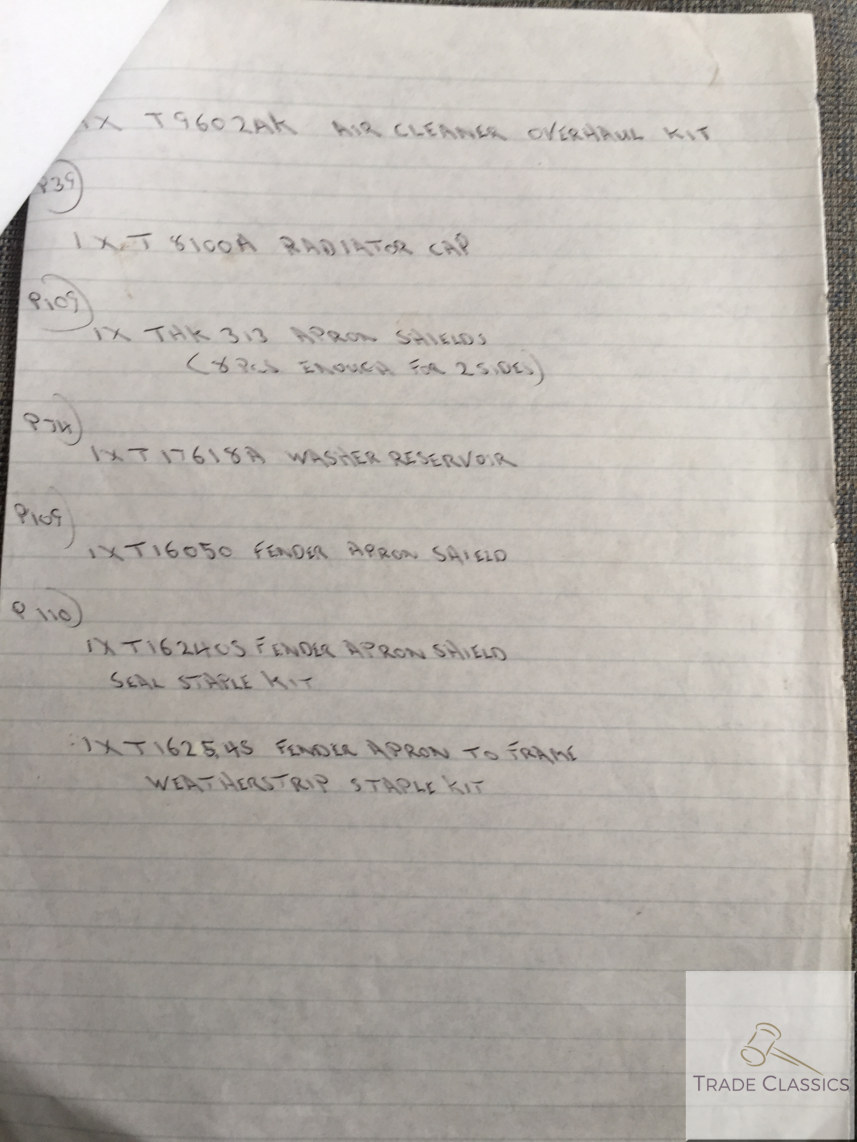 1X T9602AK AIR CLEANER OVERHAUL KIT
P39
1X T 8100A RADIATOR CAP
P109
1X THK 313 APRON SHIELDS
(8 PCS ENOUGH FOR 2 SIDES)
P74
1X T17618A WASHER RESERVOIR
P109
1X T16050 FENDER APRON SHIELD
P110
1X T16240S FENDER APRON SHIELD
SEAL STAPLE KIT
1X T16254S FENDER APRON TO FRAME
WEATHERSTRIP STAPLE KIT
TRADE CLASSICS